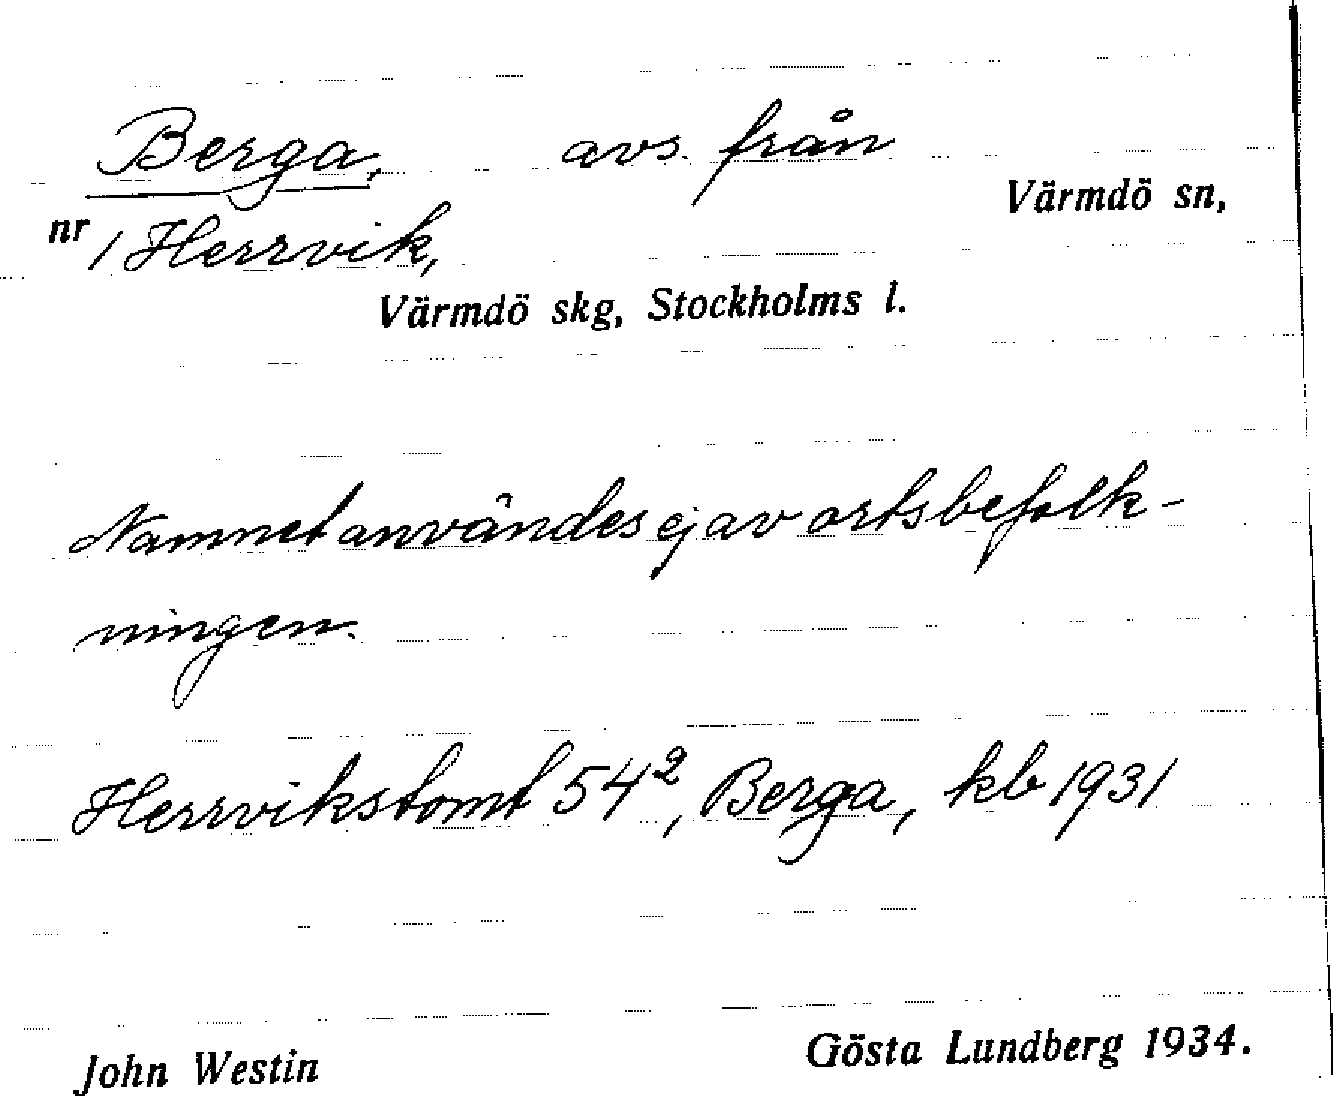 Berga, avs. från
Värmdö sn,
nr 1 Herrvik,
Värmdö skg, Stockholms l.
Namnet användes ej av ortsbefolk-
ningen.
Herrvikstomt 54², Berga, kb 1931
John Westin Gösta Lundberg 1934.